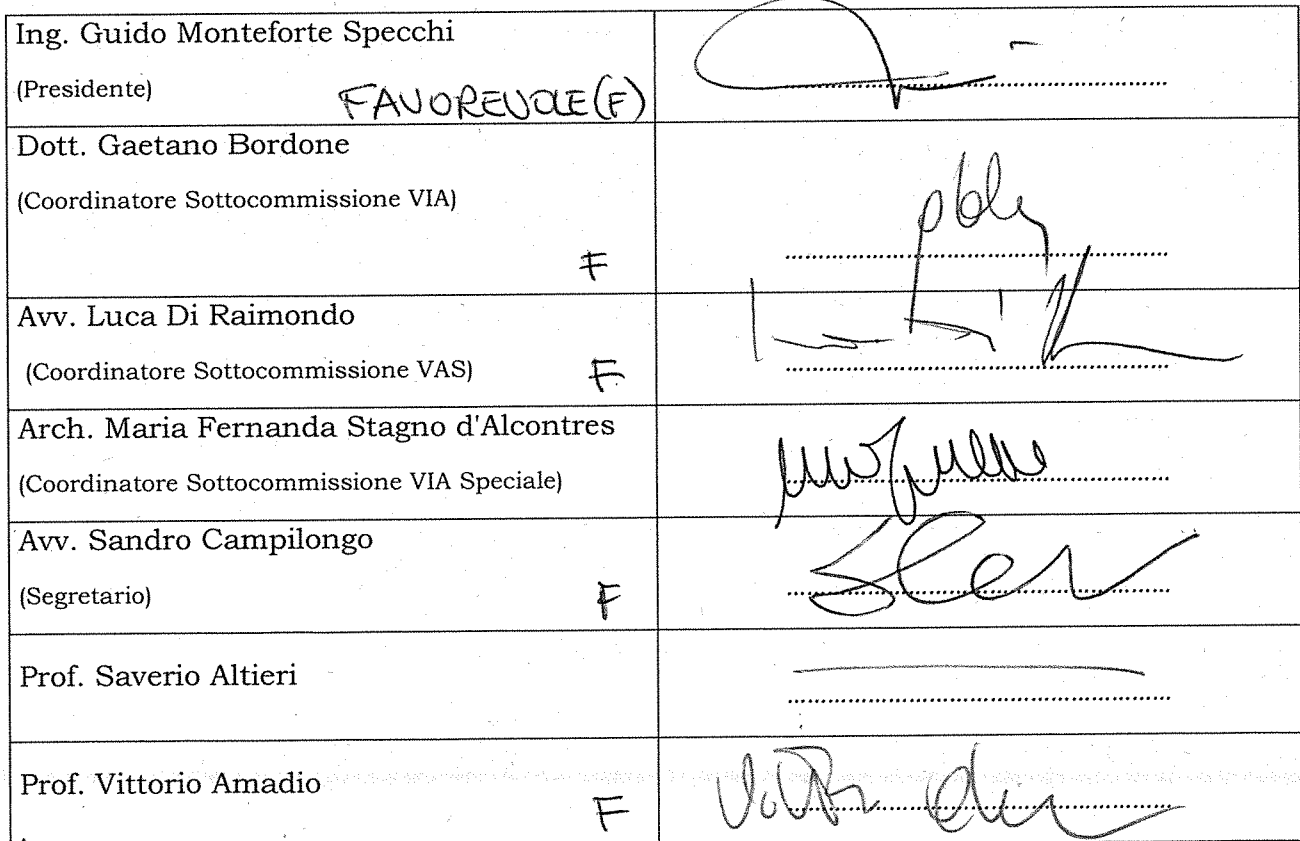 Ing. Guido Monteforte Specchi
(Presidente)
FAVOREVOLE (F)
Dott. Gaetano Bordone
(Coordinatore Sottocommissione VIA)
F
Avv. Luca Di Raimondo
(Coordinatore Sottocommissione VAS)
F
Arch. Maria Fernanda Stagno d'Alcontres
(Coordinatore Sottocommissione VIA Speciale)
Avv. Sandro Campilongo
(Segretario)
F
Prof. Saverio Altieri
Prof. Vittorio Amadio
F